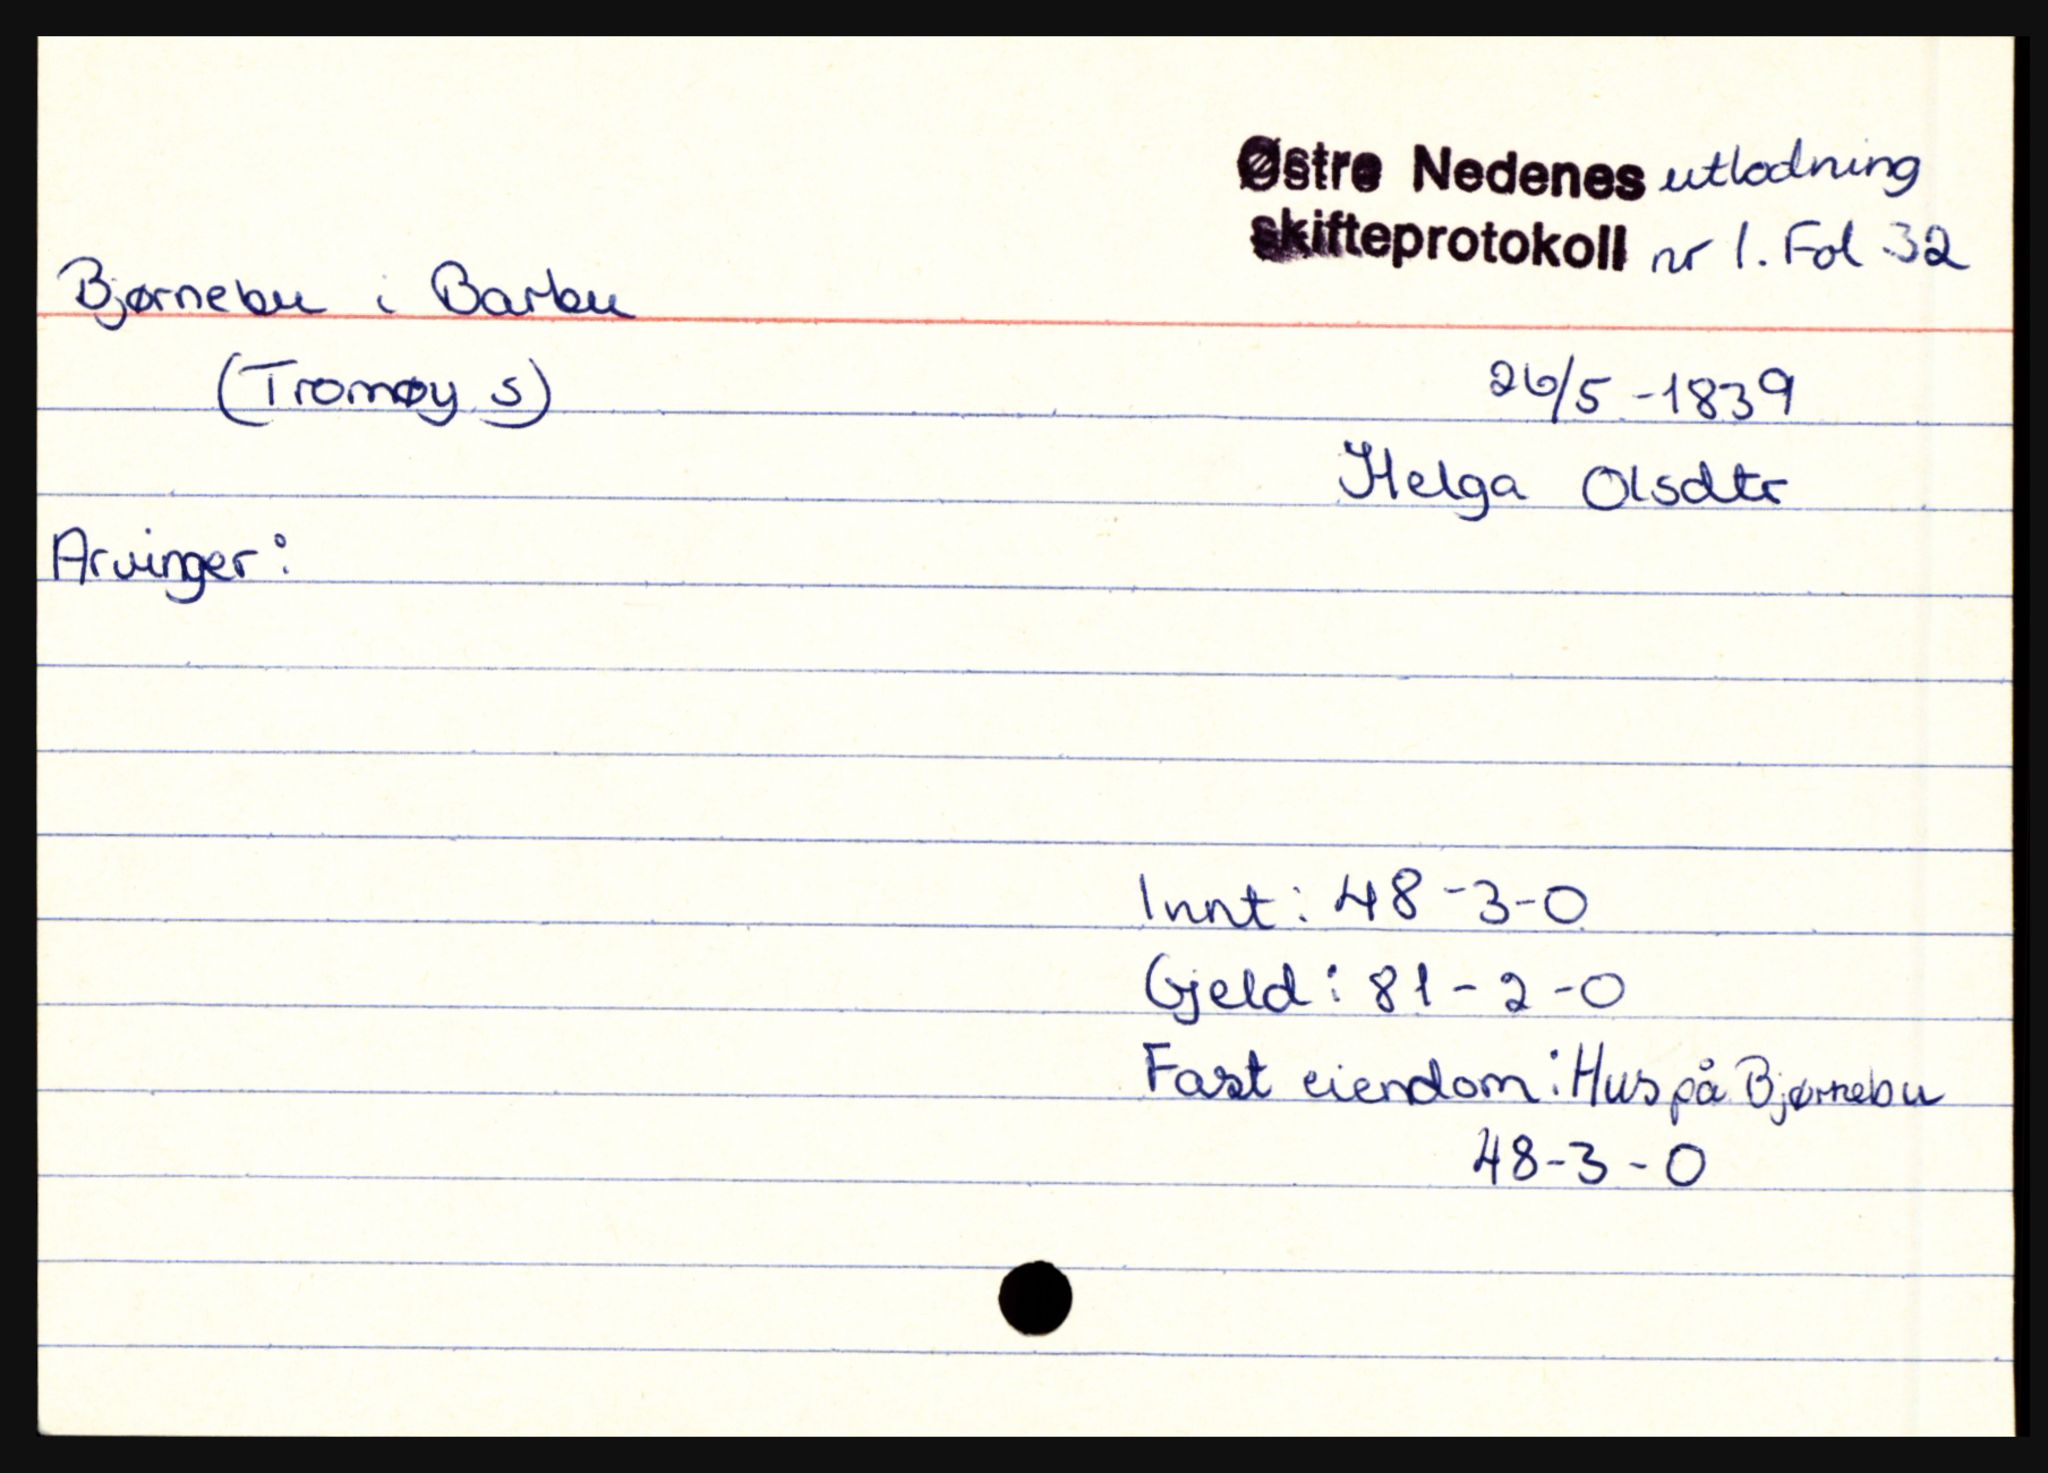 Østre Nedenes utlodning
skifteprotokoll nr 1. Fol 32
Bjørnebu i Barbu
(Tromøy s)
26/5 -1839
Helga Olsdtr
Arvinger:
Innt: 48-3-0
Gjeld: 81-2-0
Fast eiendom: Hus på Bjørnebu
48-3-0